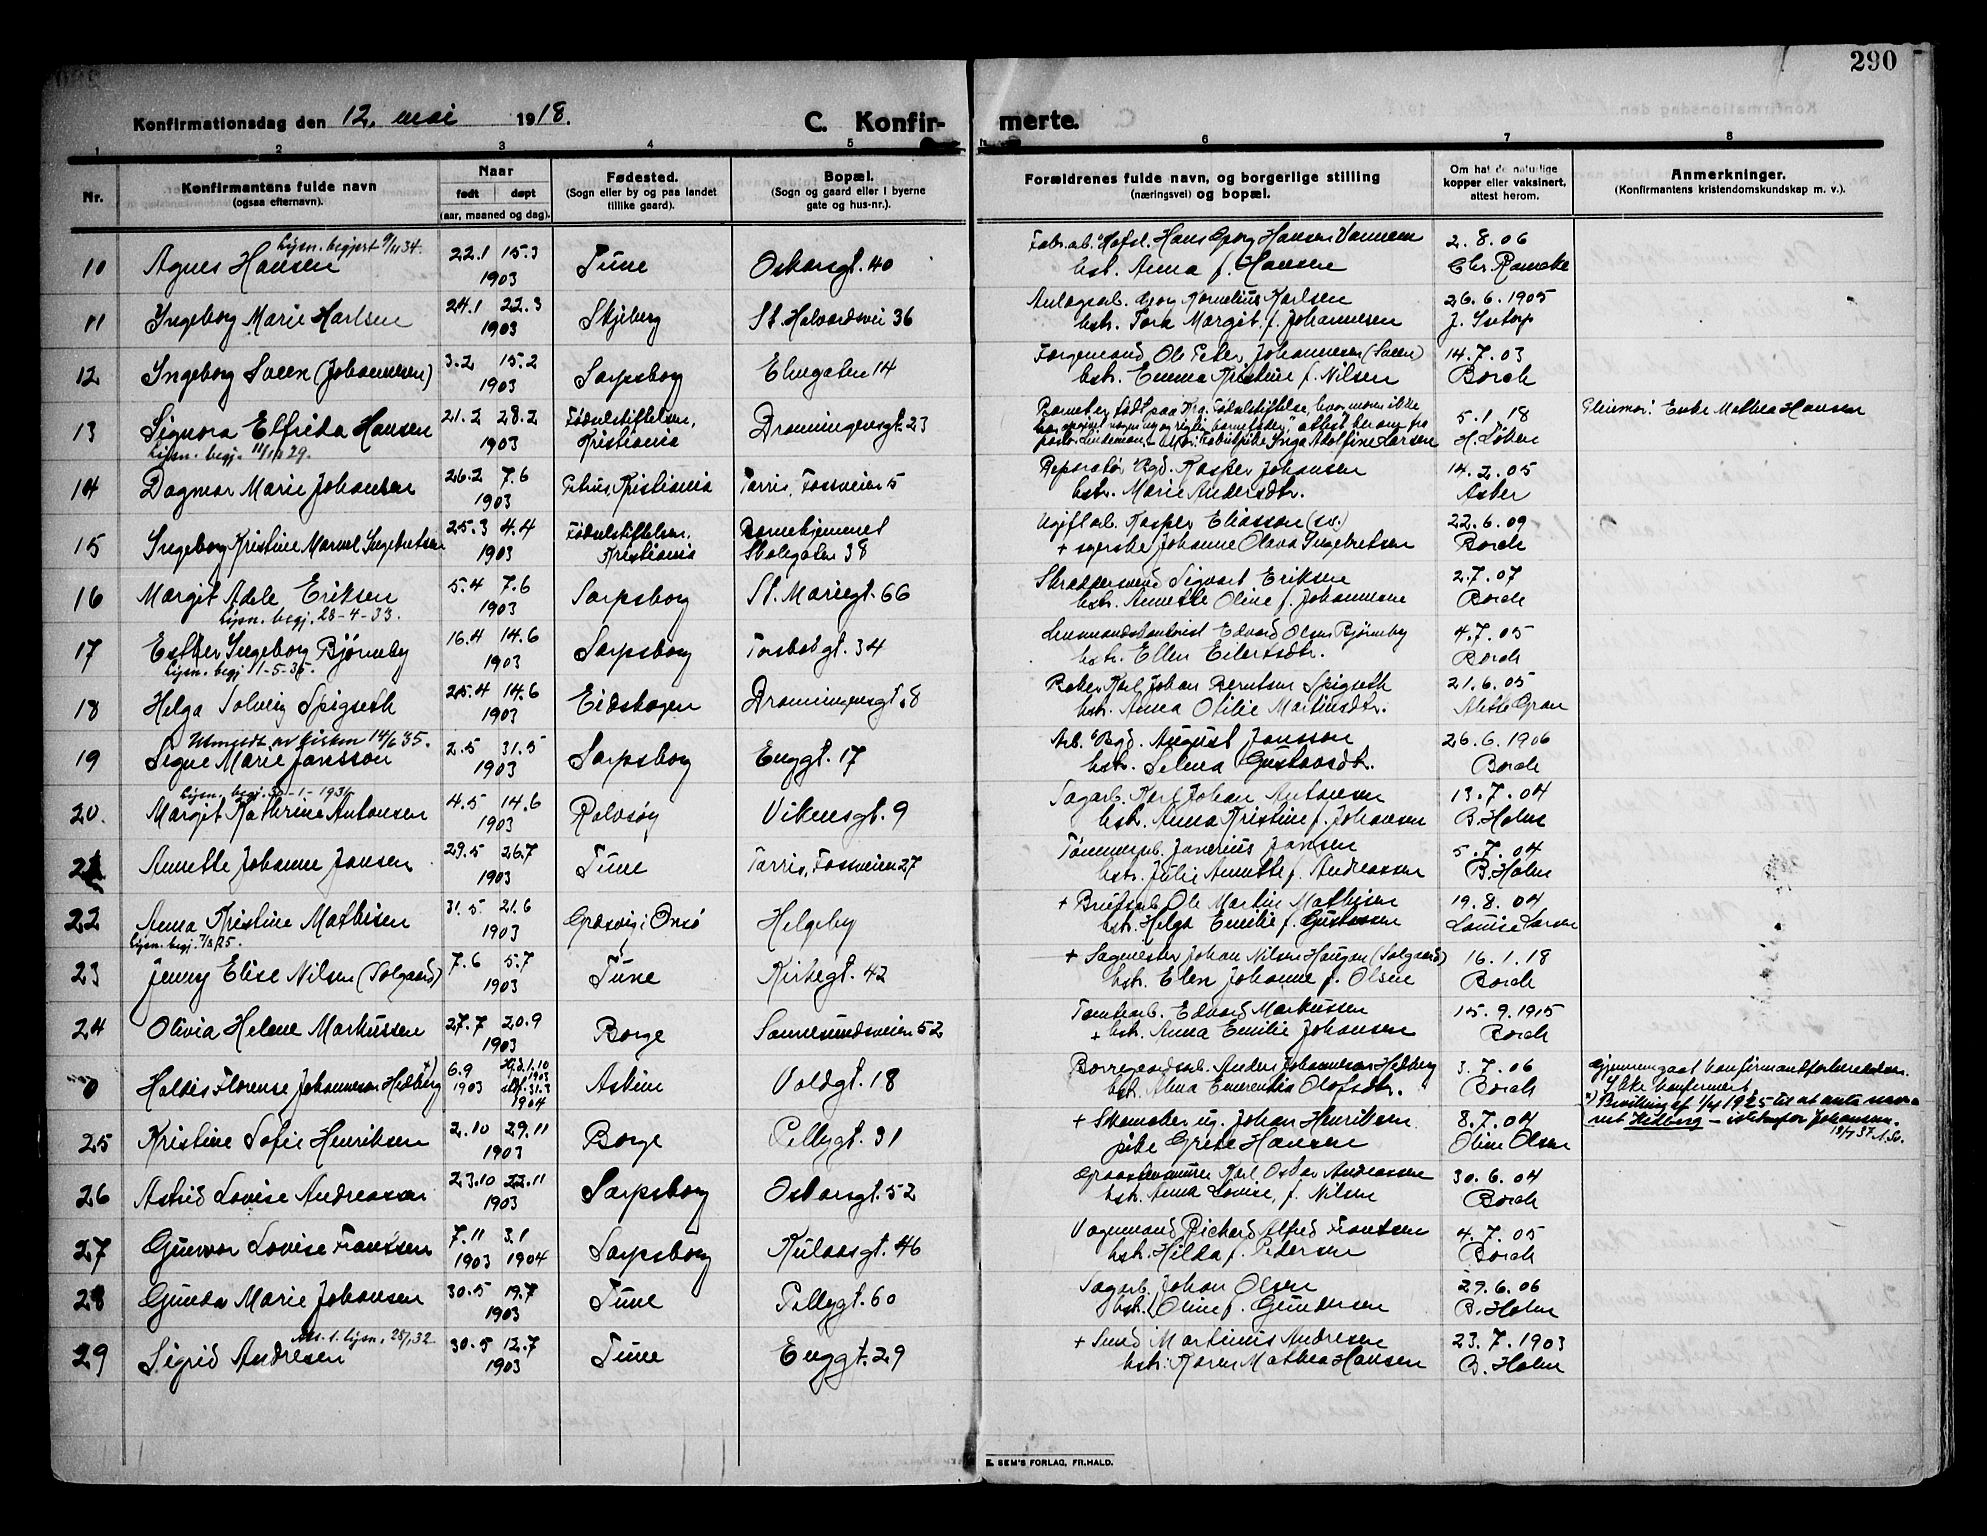 290
Konfirmationsdag den 12. mai 1918.
C. Konfir- merte.
1 2 3 4 5 6 7 8
Nr.
Konfirmantens fulde navn
(ogsaa efternavn).
Naar
født døpt
(aar, maaned og dag).
Fødested.
(Sogn eller by og paa landet
tillike gaard).
Bopæl.
(Sogn og gaard eller i byerne
gate og hus-nr.).
Forældrenes fulde navn, og borgerlige stilling
(næringsvei) og bopæl.
Om hat de naturlige
kopper eller vaksinert,
attest herom.
Anmerkninger.
(Konfirmantens kristendomskundskap m. v.).
Lysn. begjært 34.
10 Agnes Hansen 22.1 15.3 1903 Tune Oskarsgt. 40
Hans Georg Hansen 2.8.06
hstr. Anna f. Hansen
11 Ingeborg Marie Karlsen 24.1 22.3 1903 Skjeberg St. Halvardsvei 36
Anlægsarb. Georg Kornelius Karlsen 26.6.1905
hstr. Tora Margit f. Johannesen
12 Ingeborg Sveen (Johannesen) 3.2 15.2 1903 Sarpsborg Elvegaten 14
Fargemand Ole Peter Johannesen (Sveen) 14.7.03
hstr. Emma Kristine f. Nilsen Borch
13 Signora Elfrida Hansen 21.2 28.2 1903 Fødselsstiftelsen, Kristiania Dronningensgt. 23
Lysn. begj. 29.
Barnet er født paa Kra. Fødselsstiftelse, hvor moren ikke
attest herom fra
Fabrikpike Inga Adolfine Larsen
5.1.18
H. Løken
Pleiemor: Enke Mathea Hansen
14 Dagmar Marie Johansen 26.2 7.6 1903 Petrus, Kristiania Tarris, Fossveien 5
Reparatør Kasper Johansen 14.2.05
hstr. Marie Andersdtr. Asker
15 Ingeborg Kristine Marvel Ingebretsen 25.3 4.4 1903 Fødselsstiftelsen, Kristiania Barnehjemmet Skolegaten 38
Ugift arb. Kasper Eliasson (sv.) 22.6.09
+ syerske Johanne Olava Ingebretsen Borch
16 Margit Adele Eriksen 5.4 7.6 1903 Sarpsborg St. Mariegt. 66
Lysn. begj. 28-4-33.
Skræddersvend Sigvart Eriksen 2.7.07
hstr. Annette Oline f. Johannesen Borch
17 Esther Ingeborg Bjørneby 16.4 14.6 1903 Sarpsborg Torsbekgt. 34
Lysn. begj. 1-5-35.
Lensmandskontorist Edvard Olsen Bjørneby 4.7.05
hstr. Ellen Eilertsdtr. Borch
18 Helga Solveig Spigseth 25.4 14.6 1903 Eidskogen Dronningensgt. 8
Baker Karl Johan Berntsen Spigseth 21.6.05
hstr. Anna Otilie Martinsdtr. Alette Gran
Utmeldt av kirken 14/6 35.
19 Signe Marie Jansson 2.5 31.5 1903 Sarpsborg Enggt. 17
Arb. August Jansson 26.6.1906
hstr. Selma Gustavsdt. Borch
20. Margit Kathrine Antonsen 4.5 14.6 1903 Rolvsøy Vikensgt. 9
Sagarb. Karl Johan Antonsen 13.7.04
hstr. Anna Kristine f. Johansen B. Holm
21 Annette Johanne Jansen 29.5 26.7 1903 Tune Tarris, Fossveien 27
Tømmerarb. Jansen 5.7.04
hstr. Julie Annette f. Andreassen B. Holm
22 Anna Kristine Mathisen 31.5 21.6 1903 Græsvig i Onsø Helgeby
Lysn. begj. 25.
+ Ole Martin Mathisen 19.8.04
hstr. Helga Emilie f. Gustavsen Louise Larsen
23 Jenny Elise Nilsen (Solgaard) 7.6 5.7 1903 Tune Kirkegt. 42
+ Sagmester Johan Nilsen Haugen (Solgaard) 16.1.18
hstr. Elen Johanne f. Olsen Borch
24 Olivia Helene Markussen 27.7 20.9 1903 Borge Sannesundsveien 52
Tomtearb. Edvard Markussen 15.9.1915
+ hstr. Anna Emilie Johansen Borch
0 Haldis Florense Johannesen Hedberg 6.9 1903 Hjd. 1.10 1903 31.3 1904 Askim Voldgt. 18
Borregaardsarb. Anders Johannesen Hedberg 3.7.06
hst. Alma Emerentia Olofsdtr. Borch
Gjennemgaat konfirmantforberedelsen.
Ikke konfirmert
x) Bevilling af 1/4 1925 til at anta navnet Hedberg – istedenfor Johansen.
25 Kristine Sofie Henriksen 2.10 29.11 1903 Borge Pellygt. 31
+ Skomaker ug. Johan Henriksen 8.7.04
pike Grete Hansen Oline Olsen
26 Astrid Lovise Andreassen 23.10 22.11 1903 Sarpsborg Oskarsgt. 52
Graastensmurer Karl Oskar Andreassen 30.6.04
hst. Anna Lovise, f. Nilsen Borch
27 Gunvor Lovise Frantsen 7.11 1903 3.1 1904 Sarpsborg Kulaasgt. 46
Vognmand Richard Alfred Frantsen 4.7.05
hstr. Hilda f. Pedersen Borch
28 Gunda Marie Johansen 30.5 19.7 1903 Tune Pellygt. 60
Sagarb. Johan Olsen 29.6.06
hst. Oline f. Gundersen B. Holm
29 Sigrid Andresen 30.5 12.7 1903 Tune Enggt. 29
+ Smed Martinius Andresen 23.7.1903
hstr. Karen Mathea Hansen B. Holm
E. SEM'S FORLAG, FR.HALD.